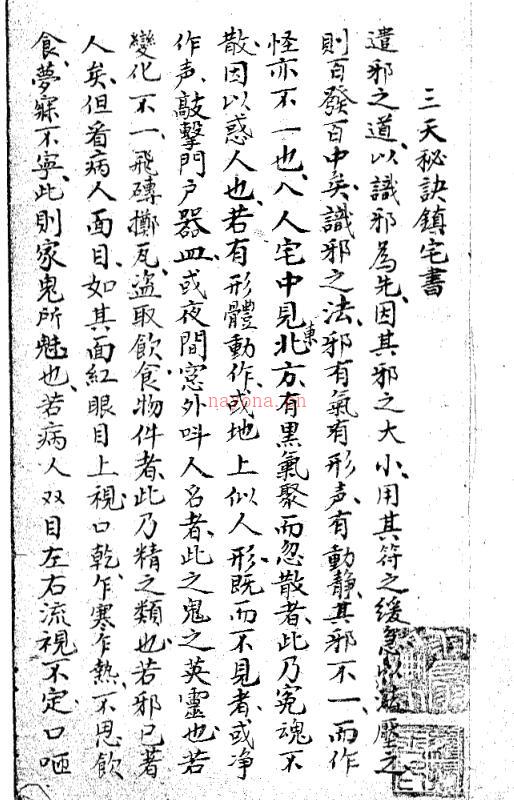 三天秘訣鎮宅書
遣邪之道、以識邪為先、因其邪之大小、用其符之緩急、壓之
則百發百中矣、識邪之法、邪有氣有形声、有動静、其邪不一、而作
怪亦不一也、入人宅中見東北方、有黑氣聚而忽散者、此乃冤魂不
散、因以惑人也、若有形體動作、或地上似人形、既而不見者、或净
作声、敲擊門户器皿、或夜間窓外呌人名者、此之鬼之英靈也、若
變化不一、飛磚擲瓦、盗取飲食物件者、此乃精之類也、若邪已著
人矣、但看病人面目、如其面紅眼目上視、口乾、乍寒乍熱、不思飲
食、夢寐不寧、此則家鬼所魅也、若病人双目左右流視不定、口咂
nayona.cn